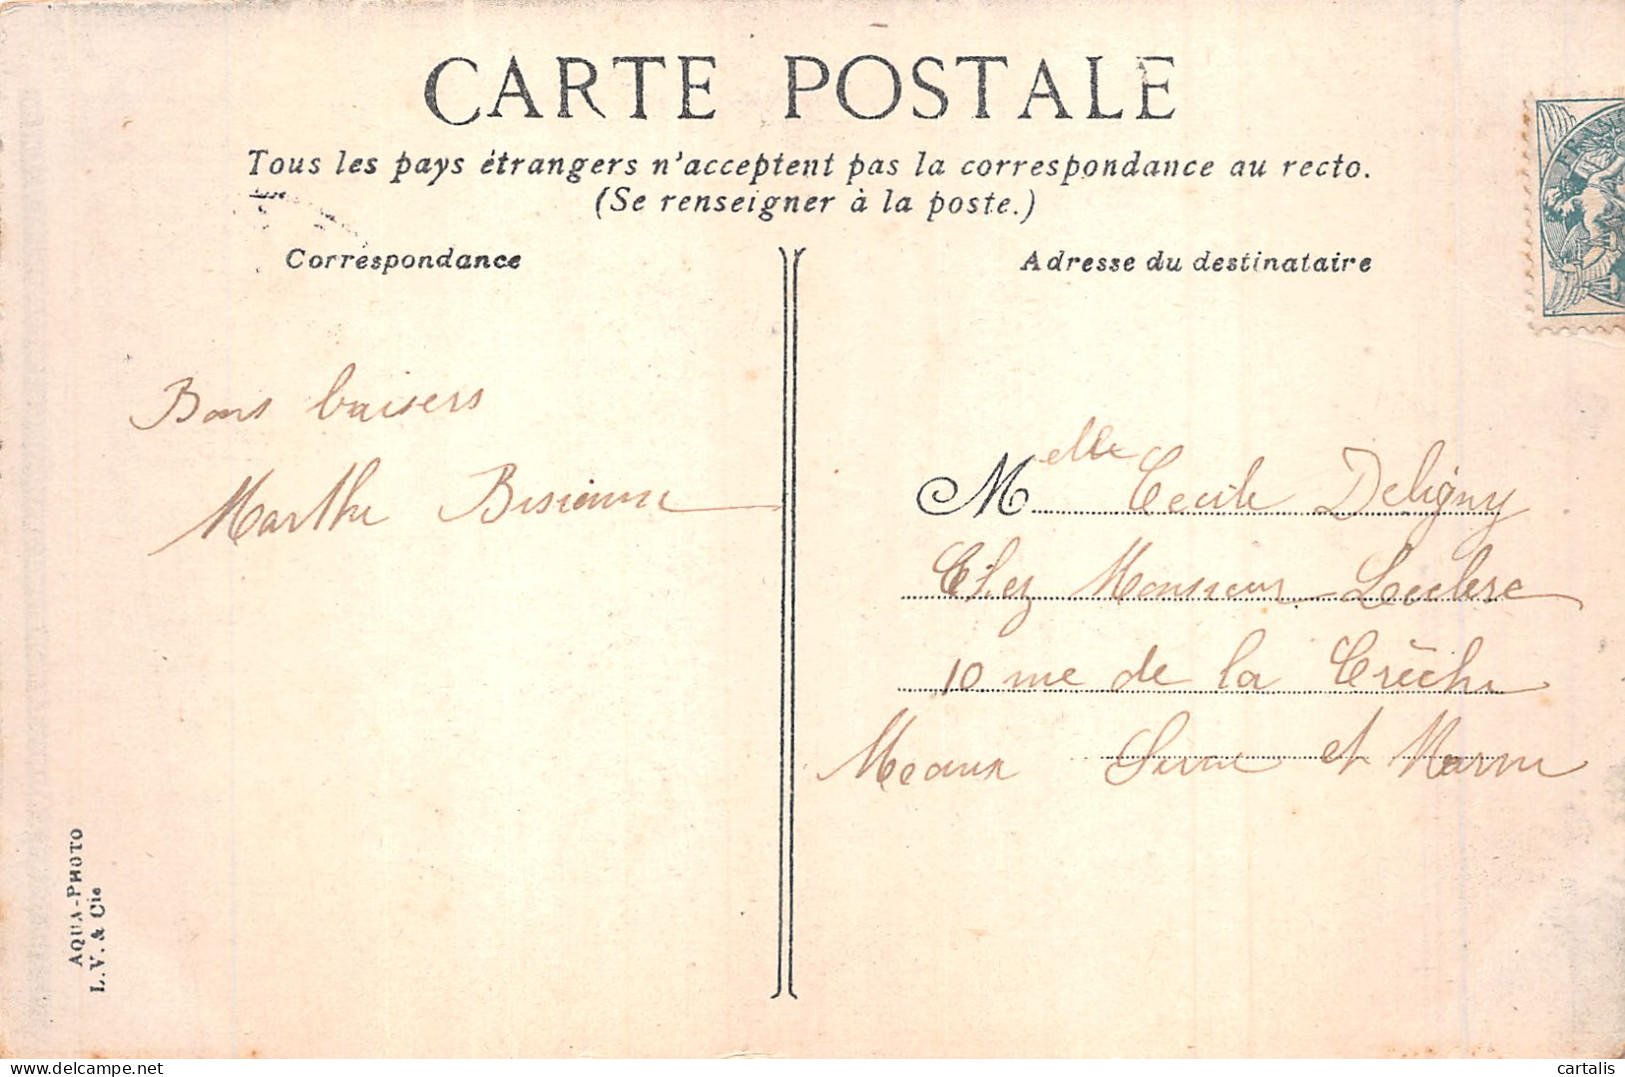 CARTE POSTALE
Tous les pays étrangers n'acceptent pas la correspondance au recto.
(Se renseigner à la poste.)
Correspondance
Adresse du destinataire
Bons baisers
Marthe
Melle Cecile Deligny
Chez Monsieur Leclerc
10 rue de la Crèche
Meaux Seine et Marne
AQUA-PHOTO
L. V. & Cie
delcampe.net
cartalis